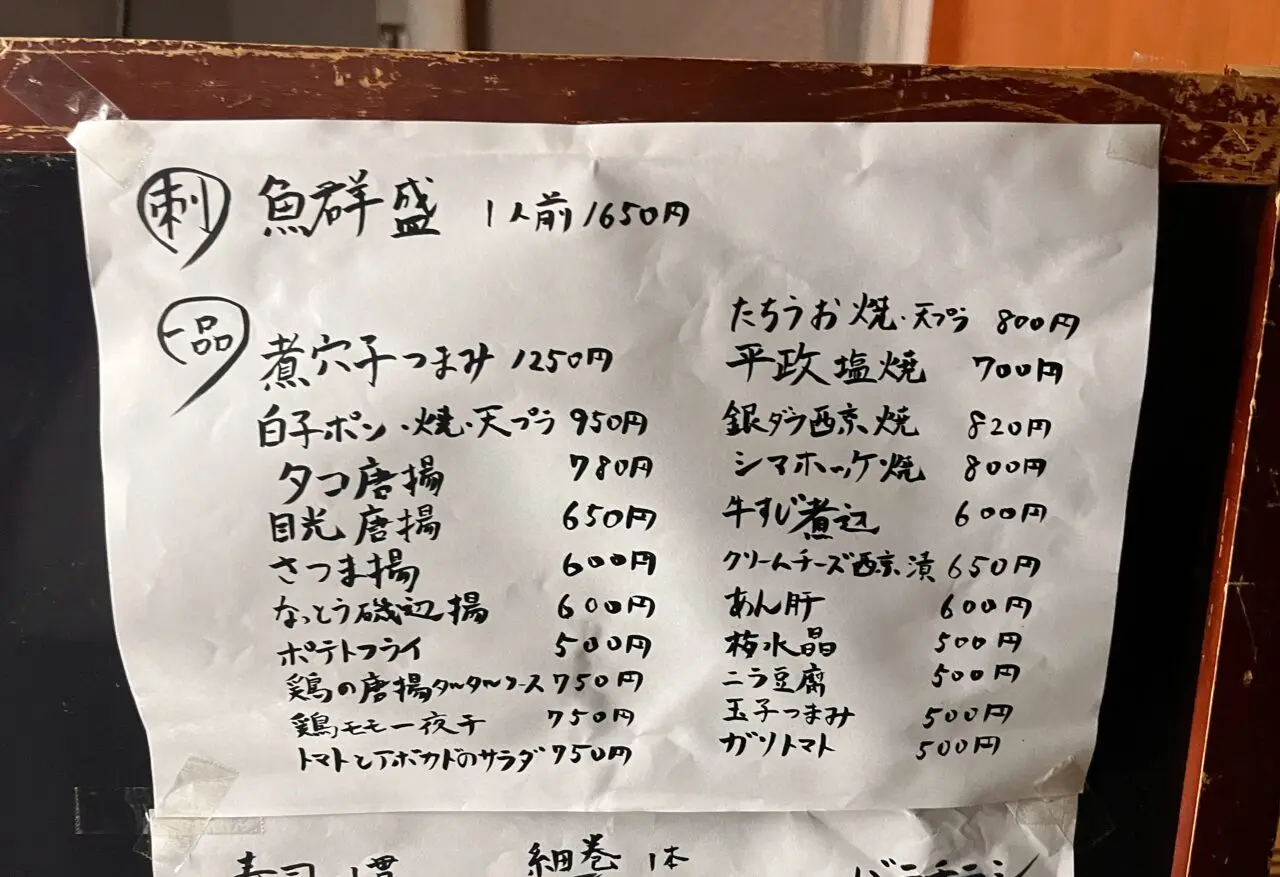 刺 魚群盛 1人前1650円
一品
煮穴子つまみ 1250円
白子ポン・焼・天プラ 950円
タコ唐揚 780円
目光唐揚 650円
さつま揚 600円
なっとう磯辺揚 600円
ポテトフライ 500円
鶏の唐揚タルタルソース 750円
鶏モモ一夜干 750円
トマトとアボカドのサラダ 750円
たちうお焼・天プラ 800円
平政塩焼 700円
銀ダラ西京焼 820円
シマホッケ焼 800円
牛すじ煮込 600円
クリームチーズ西京漬 650円
あん肝 600円
梅水晶 500円
ニラ豆腐 500円
玉子つまみ 500円
ガリトマト 500円
寿司 1貫
細巻 1本
バラチラシ